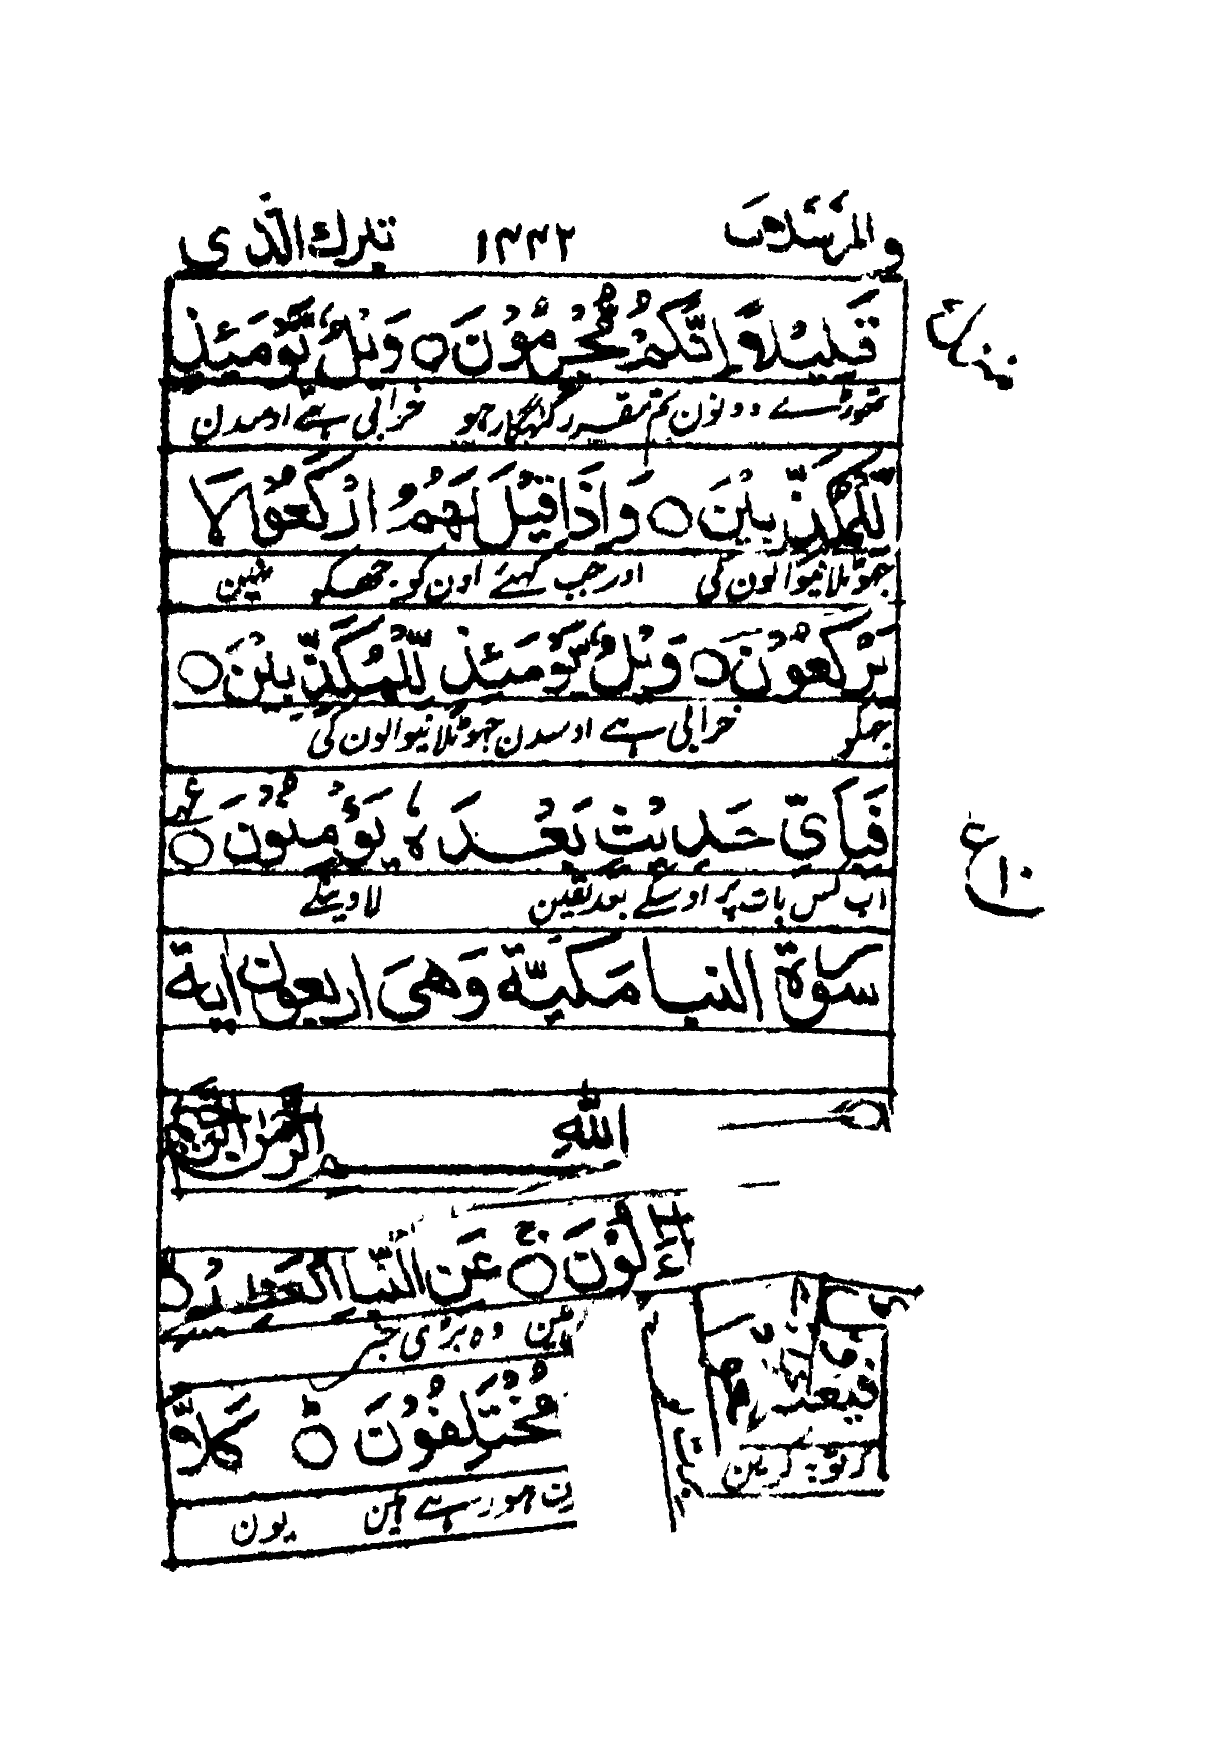 والمرسلات ۱۴۴۲ تبرك الذی
قَلِيْلًا اِنَّكُمْ مُّجْرِمُوْنَ ○ وَيْلٌ يَّوْمَئِذٍ
تھوڑے دونون تم مقرر گنہگار ہو خرابی ہے اوسدن
لِّلْمُكَذِّبِيْنَ ○ وَاِذَا قِيْلَ لَهُمُ ارْكَعُوْا لَا
جھوٹلانیوالون کی اور جب کہئے اون کو جھکو نہین
يَرْكَعُوْنَ ○ وَيْلٌ يَّوْمَئِذٍ لِّلْمُكَذِّبِيْنَ ○
خرابی ہے اوسدن جھوٹلانیوالون کی
فَبِاَيِّ حَدِيْثٍ بَعْدَهٗ يُؤْمِنُوْنَ ○
اب کس بات پر اوسکے بعد یقین لاوینگے
سورة النبا مكية وهي اربعون اية
الله الرحمن الرحيم
عَنِ النَّبَاِ الْعَظِيْمِ ○
وہ بڑی خبر
مُخْتَلِفُوْنَ ○ كَلَّا
ہو رہے ہین یون